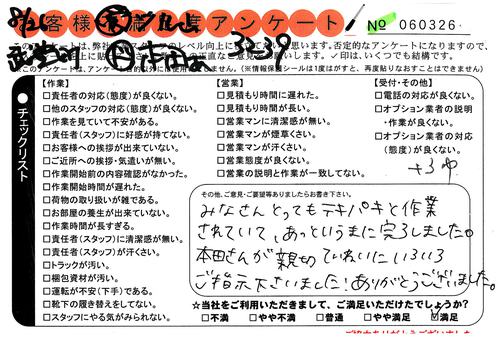 お客様未満足度アンケート
№ 060326
【作業】
□責任者の対応(態度)が良くない。
□他のスタッフの対応(態度)が良くない。
□作業を見ていて不安がある。
□責任者(スタッフ)に好感が持てない。
□お客様への挨拶が出来ていない。
□ご近所への挨拶・気遣いが無い。
□作業開始前の内容確認がなかった。
□作業開始時間が遅れた。
□荷物の取り扱いが雑である。
□お部屋の養生が出来ていない。
□作業時間が長すぎる。
□責任者(スタッフ)に清潔感が無い。
□責任者(スタッフ)が汗くさい。
□トラックが汚い。
□梱包資材が汚い。
□運転が不安(下手)である。
□靴下の履き替えをしてない。
□スタッフにやる気がみられない。
【営業】
□見積もり時間に遅れた。
□見積もり時間が長い。
□営業マンに清潔感が無い。
□営業マンが煙草くさい。
□営業マンが汗くさい。
□営業態度が良くない。
□営業の説明と作業が一致してない。
【受付・その他】
□電話の対応が良くない。
□オプション業者の説明
・作業が良くない。
□オプション業者の対応
(態度)が良くない。
●チェックリスト
その他、ご意見・ご要望等ありましたらお書き下さい。
みなさんとってもテキパキと作業
されていて、あっというまに完了しました。
本田さんが親切ていねいにいろいろ
ご指示下さいました!ありがとうございました。
☆当社をご利用いただきまして、ご満足いただけたでしょうか?
□不満 □やや不満 □普通 □やや満足 ☑満足